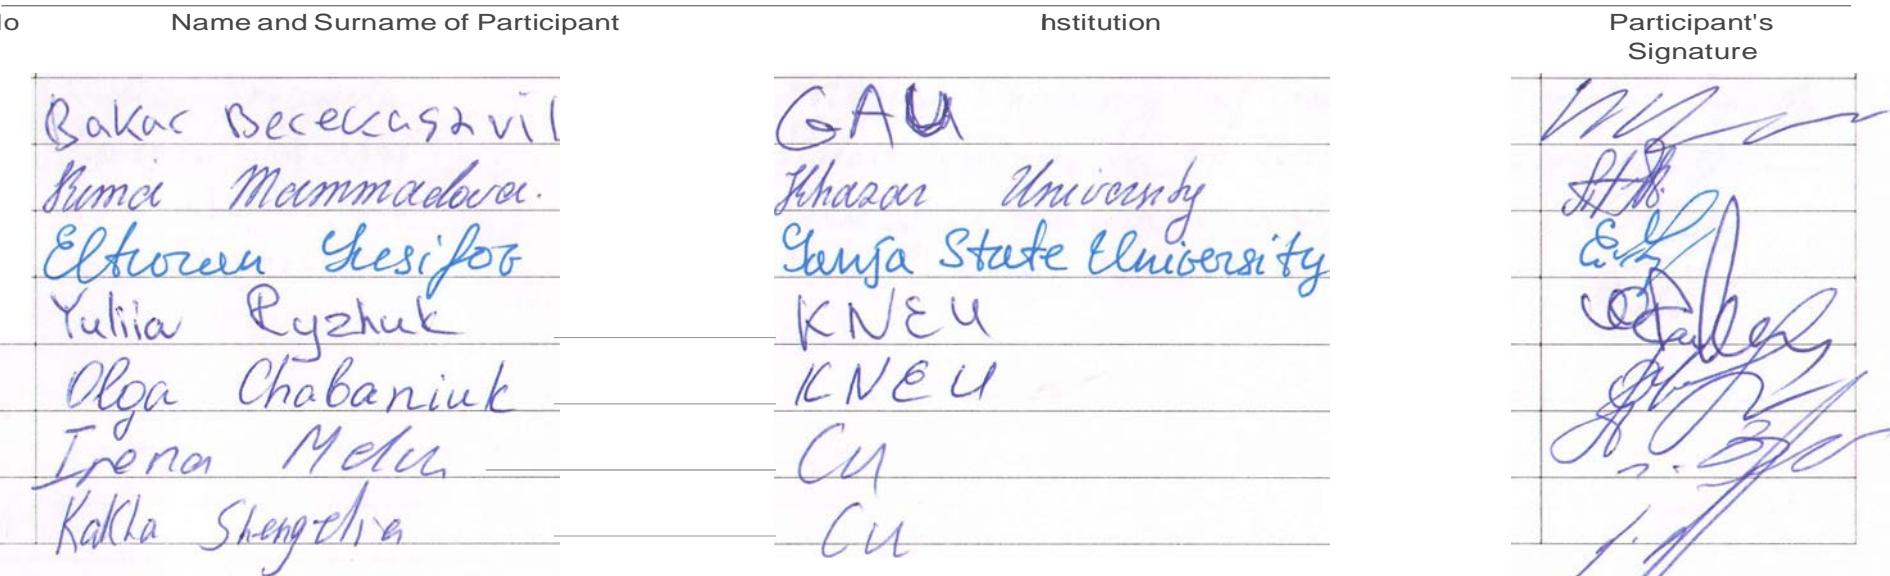 lo Name and Surname of Participant hstitution Participant's
Signature
Bakar Berekashvil GAU
Mammadova. Khazar University
Yusifov Ganja State University
Yuliia Ryzhuk KNEU
Olga Chabaniuk KNEU
Irena Melu CU
Kakha Shengelia CU